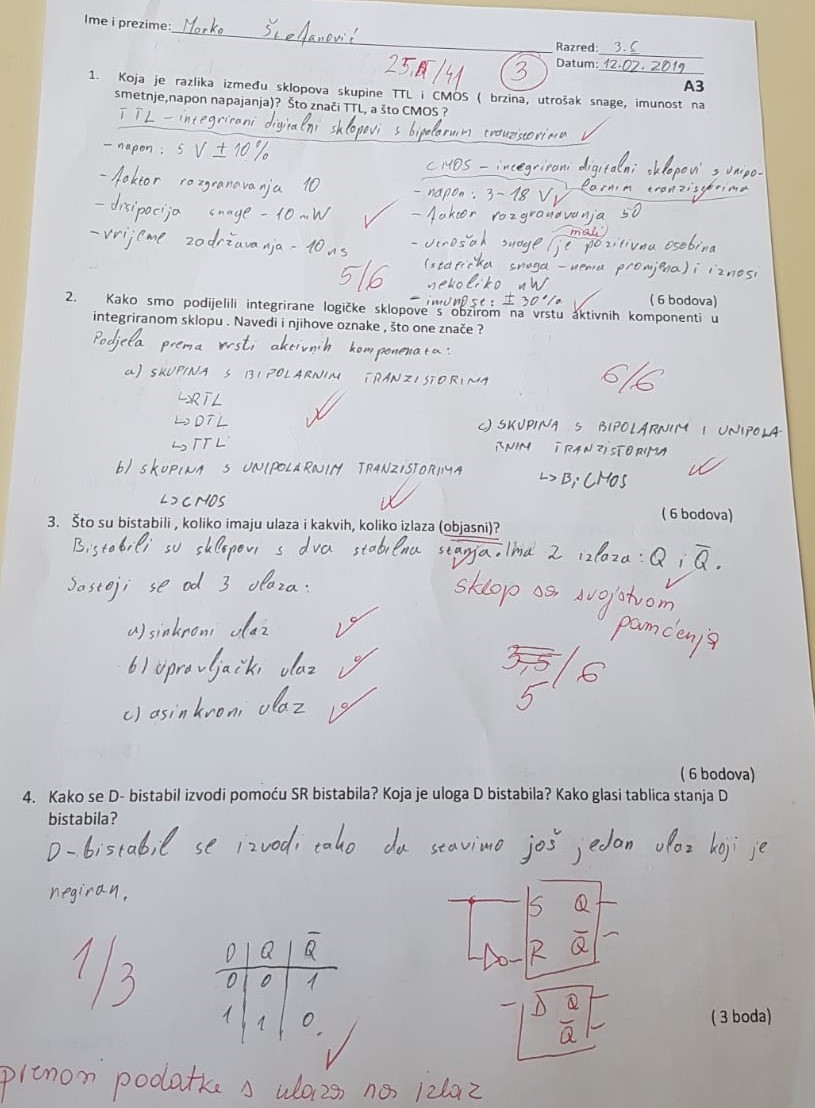 Ime i prezime: Marko Stefanović
Razred: 3.C
Datum: 12.02.2019
25,5/41 3
A3
1. Koja je razlika između sklopova skupine TTL i CMOS ( brzina, utrošak snage, imunost na
smetnje,napon napajanja)? Što znači TTL, a što CMOS ?
TTL - integrirani digitalni sklopovi s bipolarnim tranzistorima
- napon: 5 V ± 10%
- faktor razgranavanja 10
- disipacija snage - 10 mW
- vrijeme zadržavanja - 10 ns
5/6
CMOS - integrirani digitalni sklopovi s unipo-
larnim tranzistorima
- napon: 3-18 V
- faktor razgranavanja 50
mali
- utrošak snage je pozitivna osobina
(statička snaga - nema promjena) i iznosi
nekoliko nW
- imunost: ± 30%
( 6 bodova)
2. Kako smo podijelili integrirane logičke sklopove s obzirom na vrstu aktivnih komponenti u
integriranom sklopu . Navedi i njihove oznake , što one znače ?
Podjela prema vrsti aktivnih komponenata:
a) SKUPINA S BIPOLARNIM TRANZISTORIMA
↳RTL
↳DTL
↳TTL
6/6
b) SKUPINA S UNIPOLARNIM TRANZISTORIMA
↳CMOS
c) SKUPINA S BIPOLARNIM I UNIPOLA-
RNIM TRANZISTORIMA
↳BiCMOS
( 6 bodova)
3. Što su bistabili , koliko imaju ulaza i kakvih, koliko izlaza (objasni)?
Bistabili su sklopovi s dva stabilna stanja. Ima 2 izlaza: Q i Q̅.
Sastoji se od 3 ulaza:
sklop sa svojstvom
pamćenja
a) sinkroni ulaz
b) upravljački ulaz
c) asinkroni ulaz
3,5/6
5
( 6 bodova)
4. Kako se D- bistabil izvodi pomoću SR bistabila? Koja je uloga D bistabila? Kako glasi tablica stanja D
bistabila?
D-bistabil se izvodi tako da stavimo još jedan ulaz koji je
negiran.
1/3
D Q Q̅
0 0 1
1 1 0.
S Q
R Q̅
D Q
Q̅
( 3 boda)
prenosi podatke s ulaza na izlaz